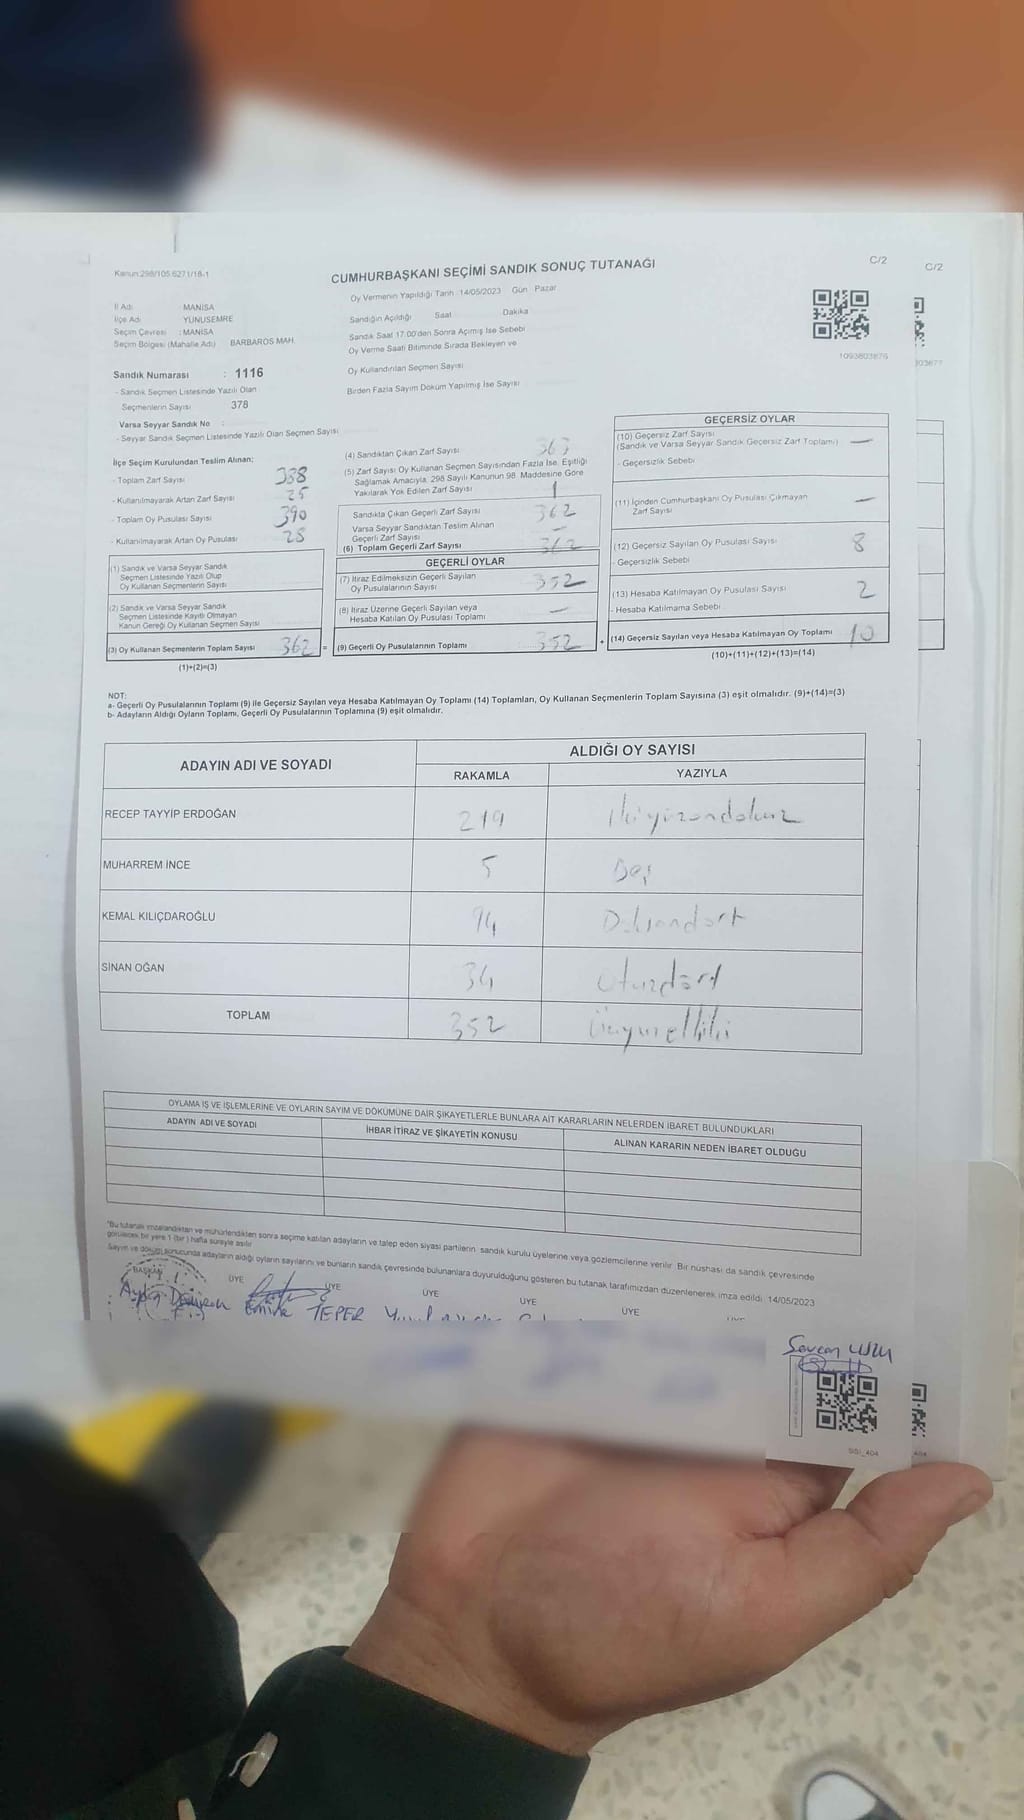 Kanun:298/105 6271/18-1
CUMHURBAŞKANI SEÇİMİ SANDIK SONUÇ TUTANAĞI
C/2
C/2
Oy Vermenin Yapıldığı Tarih :14/05/2023 Gün Pazar
İl Adı MANİSA
İlçe Adı YUNUSEMRE
Seçim Çevresi : MANİSA
Seçim Bölgesi (Mahalle Adı) BARBAROS MAH.
Sandığın Açıldığı Saat Dakika
Sandık Saat 17.00'den Sonra Açımış İse Sebebi
Oy Verme Saati Bitiminde Sırada Bekleyen ve
Oy Kullandırılan Seçmen Sayısı
Birden Fazla Sayım Döküm Yapılmış İse Sayısı
1093803876
Sandık Numarası : 1116
- Sandık Seçmen Listesinde Yazılı Olan
Seçmenlerin Sayısı 378
Varsa Seyyar Sandık No
- Seyyar Sandık Seçmen Listesinde Yazılı Olan Seçmen Sayısı
İlçe Seçim Kurulundan Teslim Alınan:
- Toplam Zarf Sayısı 388
- Kullanılmayarak Artan Zarf Sayısı 25
- Toplam Oy Pusulası Sayısı 390
- Kullanılmayarak Artan Oy Pusulası 28
(1) Sandık ve Varsa Seyyar Sandık
Seçmen Listesinde Yazılı Olup
Oy Kullanan Seçmenlerin Sayısı
(2) Sandık ve Varsa Seyyar Sandık
Seçmen Listesinde Kayıtlı Olmayan
Kanun Gereği Oy Kullanan Seçmen Sayısı
(3) Oy Kullanan Seçmenlerin Toplam Sayısı 362 =
(1)+(2)=(3)
(4) Sandıktan Çıkan Zarf Sayısı 363
(5) Zarf Sayısı Oy Kullanan Seçmen Sayısından Fazla İse, Eşitliği
Sağlamak Amacıyla, 298 Sayılı Kanunun 98. Maddesine Göre
Yakılarak Yok Edilen Zarf Sayısı 1
Sandıkta Çıkan Geçerli Zarf Sayısı 362
Varsa Seyyar Sandıktan Teslim Alınan
Geçerli Zarf Sayısı —
(6) Toplam Geçerli Zarf Sayısı 362
GEÇERLİ OYLAR
(7) İtiraz Edilmeksizin Geçerli Sayılan
Oy Pusulalarının Sayısı 352
(8) İtiraz Üzerine Geçerli Sayılan veya
Hesaba Katılan Oy Pusulası Toplamı —
(9) Geçerli Oy Pusulalarının Toplamı 352 +
GEÇERSİZ OYLAR
(10) Geçersiz Zarf Sayısı
(Sandık ve Varsa Seyyar Sandık Geçersiz Zarf Toplamı) —
- Geçersizlik Sebebi
(11) İçinden Cumhurbaşkanı Oy Pusulası Çıkmayan
Zarf Sayısı —
(12) Geçersiz Sayılan Oy Pusulası Sayısı 8
- Geçersizlik Sebebi
(13) Hesaba Katılmayan Oy Pusulası Sayısı 2
- Hesaba Katılmama Sebebi
(14) Geçersiz Sayılan veya Hesaba Katılmayan Oy Toplamı 10
(10)+(11)+(12)+(13)=(14)
NOT:
a- Geçerli Oy Pusulalarının Toplamı (9) ile Geçersiz Sayılan veya Hesaba Katılmayan Oy Toplamı (14) Toplamları, Oy Kullanan Seçmenlerin Toplam Sayısına (3) eşit olmalıdır. (9)+(14)=(3)
b- Adayların Aldığı Oyların Toplamı, Geçerli Oy Pusulalarının Toplamına (9) eşit olmalıdır.
ADAYIN ADI VE SOYADI ALDIĞI OY SAYISI
RAKAMLA YAZIYLA
RECEP TAYYİP ERDOĞAN 219 İkiyüzondokuz
MUHARREM İNCE 5 Beş
KEMAL KILIÇDAROĞLU 94 Doksandört
SİNAN OĞAN 34 Otuzdört
TOPLAM 352 Üçyüzelliiki
OYLAMA İŞ VE İŞLEMLERİNE VE OYLARIN SAYIM VE DÖKÜMÜNE DAİR ŞİKAYETLERLE BUNLARA AİT KARARLARIN NELERDEN İBARET BULUNDUKLARI
ADAYIN ADI VE SOYADI İHBAR İTİRAZ VE ŞİKAYETİN KONUSU ALINAN KARARIN NEDEN İBARET OLDUĞU
*Bu tutanak imzalandıktan ve mühürlendikten sonra seçime katılan adayların ve talep eden siyasi partilerin sandık kurulu üyelerine veya gözlemcilerine verilir. Bir nüshası da sandık çevresinde
görülecek bir yere 1 (bir) hafta süreyle asılır.
Sayım ve döküm sonucunda adayların aldığı oyların sayılarını ve bunların sandık çevresinde bulunanlara duyurulduğunu gösteren bu tutanak tarafımızdan düzenlenerek imza edildi. 14/05/2023
BAŞKAN ÜYE ÜYE ÜYE ÜYE ÜYE
Emine TEPER
Sevcan UZU
SISI_404